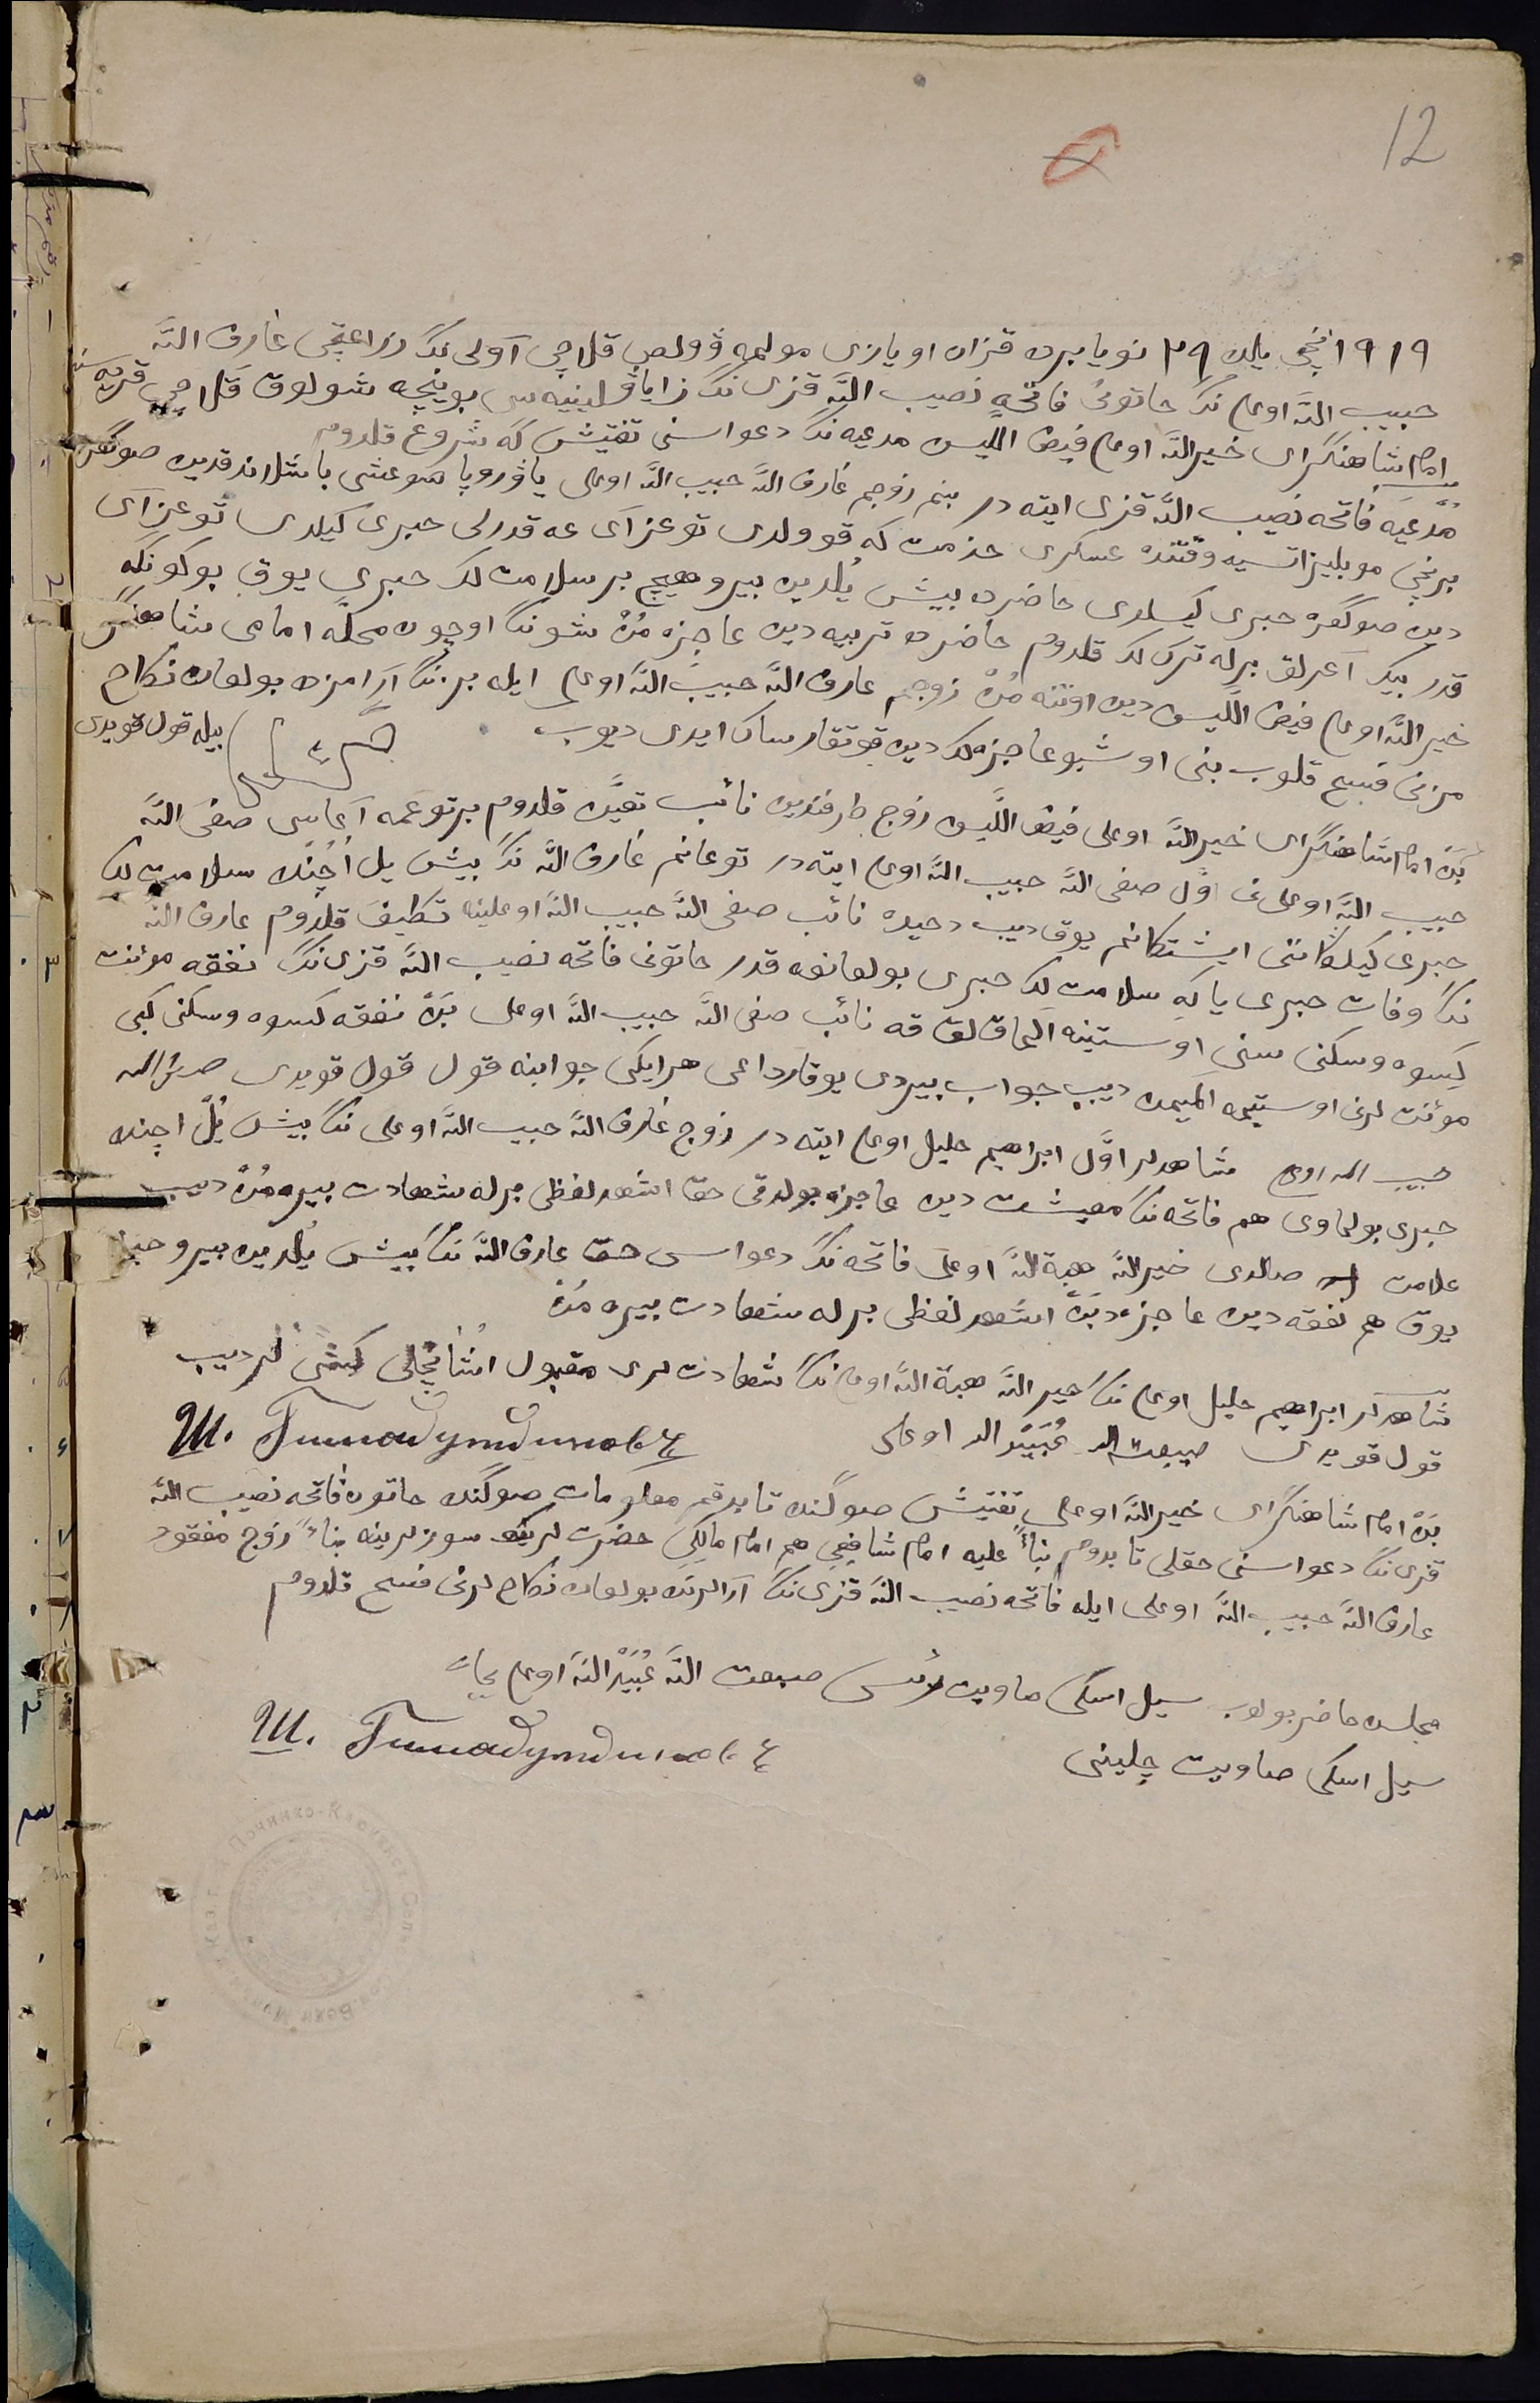 12
۱۹۱۹ نچی یلده ۲۹ نویابرده قزان اویازی مولمه ڤولصی قلاچی آولی ننگ زراعتچی عارف اللّه
حبیب اللّه اوغلی ننگ خاتونی فاتحه نصیب اللّه قزی ننگ زایاڤلینیه سی بوینچه شولوق قلاچی قریه سی
امام شاهنگرای خیراللّه اوغلی فیض اللّیس مدعیه ننگ دعواسنی تفتیش که شروع قلدوم
مدّعیه فاتحه نصیب اللّه قزی ایته در بنم زوجم عارف اللّه حبیب اللّه اوغلی یاڤروپا صوغشی باشلانغاندین صونگ
برنچی موبلیزاتسیه وقتنده عسکری خذمت که قوولدی توغز آی غه قدرلی خبری کیلدی توغز آی
دین صونگره خبری کیسلدی حاضرده بیش یلدین بیرو هیچ بر سلامت لک خبری یوق بوکونگه
قدر بیک آغرلق برله ترک لک قلدوم حاضرده تربیه دین عاجزه من شوننگ اوچون محله امامی شاهنگرای
خیراللّه اوغلی فیض اللّیس دین اوتنه من زوجم عارف اللّه حبیب اللّه اوغلی ایله برنگ آرامزده بولغان نکاح
مزنی فسخ قلوب بنی اوشبو عاجزه لک دین قوتقارساک ایدی دیوب
بیله قول قویدی
بن امام شاهنگرای خیراللّه اوغلی فیض اللّیس زوج طرفندین نائب تعیین قلدوم برتوغمه آغاسی صفی اللّه
حبیب اللّه اوغلی نی اوّل صفی اللّه حبیب اللّه اوغلی ایته در توغانم عارف اللّه ننگ بیش یل اچنده سلامت لک
خبری کیلکاننی ایشتکانم یوق دیب نائب صفی اللّه حبیب اللّه اوغلینه تکلیف قلدوم عارف اللّه
ننگ وفات خبری یاکه سلامت لک خبری بولغانغه قدر خاتونی فاتحه نصیب اللّه قزی ننگ نفقه مؤنت
کسوه وسکنی سنی اوستینه آلماقلق قه نائب صفی اللّه حبیب اللّه اوغلی بن نفقه کسوه وسکنی کبی
مؤنت لرنی اوستیمه آلمیمن دیب جواب بیردی یوقارداغی هر ایکی جوابنه قول قول قویدی صفی اللّه
حبیب اللّه اوغلی شاهدلر اوّل ابراهیم خلیل اوغلی ایته در زوج عارف اللّه حبیب اللّه اوغلی ننگ بیش یل اچنده
خبری بولماوی هم فاتحه ننگ معیشت دین عاجزه بولدقی حق اشهد لفظی برله شهادت بیره من دیب
علامت صالدی خیراللّه هبة اللّه اوغلی فاتحه ننگ دعواسی حق عارف اللّه ننگ بیش یلدین بیرو خبری
یوق هم نفقه دین عاجزه بن اشهد لفظی برله شهادت بیره من
شاهدلر ابراهیم خلیل اوغلی ننگ خیراللّه هبة اللّه اوغلی ننگ شهادت لری مقبول اشانچلی کشی لر دیب
قول قویدی صبیعت اللّه عُبَیْد اللّه اوغلی
Ш. Гиниадутдиновъ
بن امام شاهنگرای خیراللّه اوغلی تفتیش صونگنده تابدقم معلومات صونگنده خاتون فاتحه نصیب اللّه
قزی ننگ دعواسنی حقلی تابدوم بناءً علیه امام شافعی هم امام مالکی حضرت لرینگ سوزلرینه بناءً زوج مفقود
عارف اللّه حبیب اللّه اوغلی ایله فاتحه نصیب اللّه قزی ننگ آرالرنده بولغان نکاح لرنی فسخ قلدوم
مجلسده حاضر بولوب سیل اسکی صاویت رئیسی صبیعت اللّه عُبَیْد اللّه اوغلی
سیل اسکی صاویت چلینی
Ш. Гиниадутдиновъ